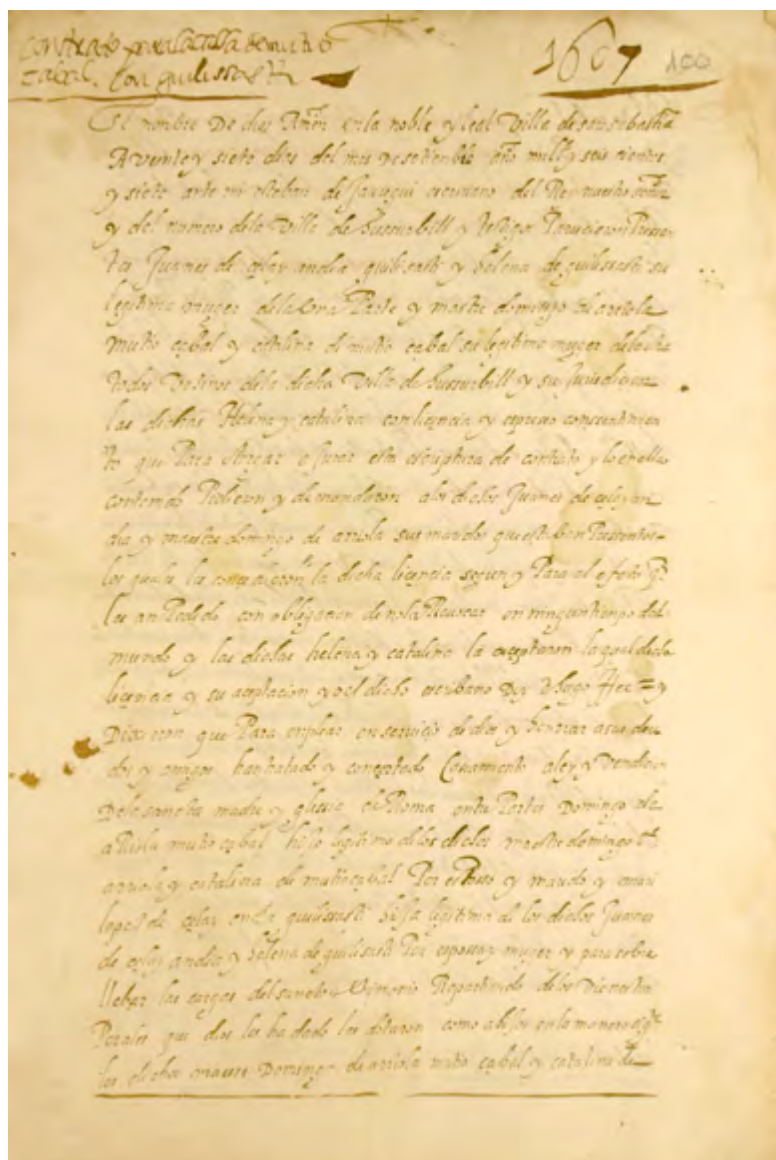 contrato para la cassa de mutio
cabal. con guilissasti
1607 100
En nombre De dios Amen en la noble y leal villa de san sebastian
A veinte y siete dias del mes de setienbre año mill y seis cientos
y siete ante mi esteban de Jauregui escrivano del Rey nuestro señor
y del numero de la villa de Sussurbill y testigos Parecieron Presen
tes Juanes de celay andia guilisasti y helena de guilissasti su
legitima muger de la una Parte y mastre domingo de arriola
mutio cabal y catalina de mutio cabal su legitima muger de la otra
todos vezinos de la dicha villa de Sussurbill y su Juridicion
las dichas Helena y catalina con licencia y espreso consentimien
to que Para otorgar e jurar esta escriptura de contrato y lo en ella
contenido Pidieron y demandaron a los dichos Juanes de celayan
dia y maestre domingo de arriola sus maridos que estaban Presentes
los quales les concedieron la dicha licencia segun y Para el efeto q
les an Pedido con obligacion de no la Revocar en ningun tiempo del
mundo y las dichas helena y catalina la aceptaron la qual dicha
licencia y su aceptacion yo el dicho escribano Doy fee y
Dixeron que Para enplear en servicio de dios y honrar a sus deu
dos y amigos han tratado y concertado Casamiento a ley y
De la sancta madre yglesia de Roma entre Partes Domingo de
aRiola mutio cabal hijo legitimo de los dichos maestre domingo de
arriola y catalina de mutio cabal Por esPosso y marido y mari
lopez de celay andia guilisasti hija legitima de los dichos Juanes
de celay andia y helena de guilisasti Por esposa y muger y para sobre
llebar las cargas del sancto matrimonio Repartiendo de los Bienes tem
Porales que dios les ha dado los dotaron como a hijos en la manera sigte
los dichos maestre Domingo de arriola mutio cabal y catalina de